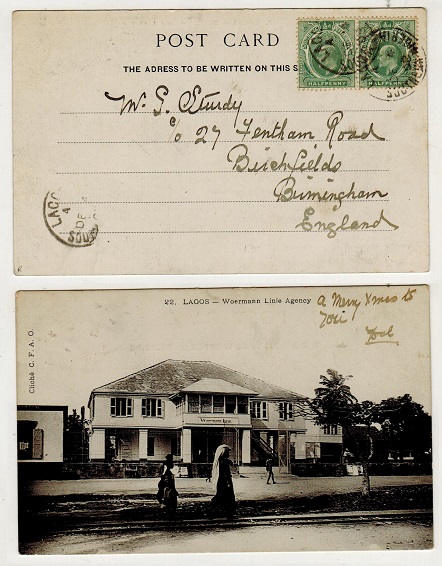 POST CARD
THE ADRESS TO BE WRITTEN ON THIS S
HALFPENNY HALFPENNY
W. G. Sturdy
c/o 27 Fentham Road
Birchfields
Birmingham
England
LAGO
4
DE
SOU
22. LAGOS — Woermann Linie Agency
a Merry Xmas to
You
Cliché C. F. A. O.
Woermann Linie